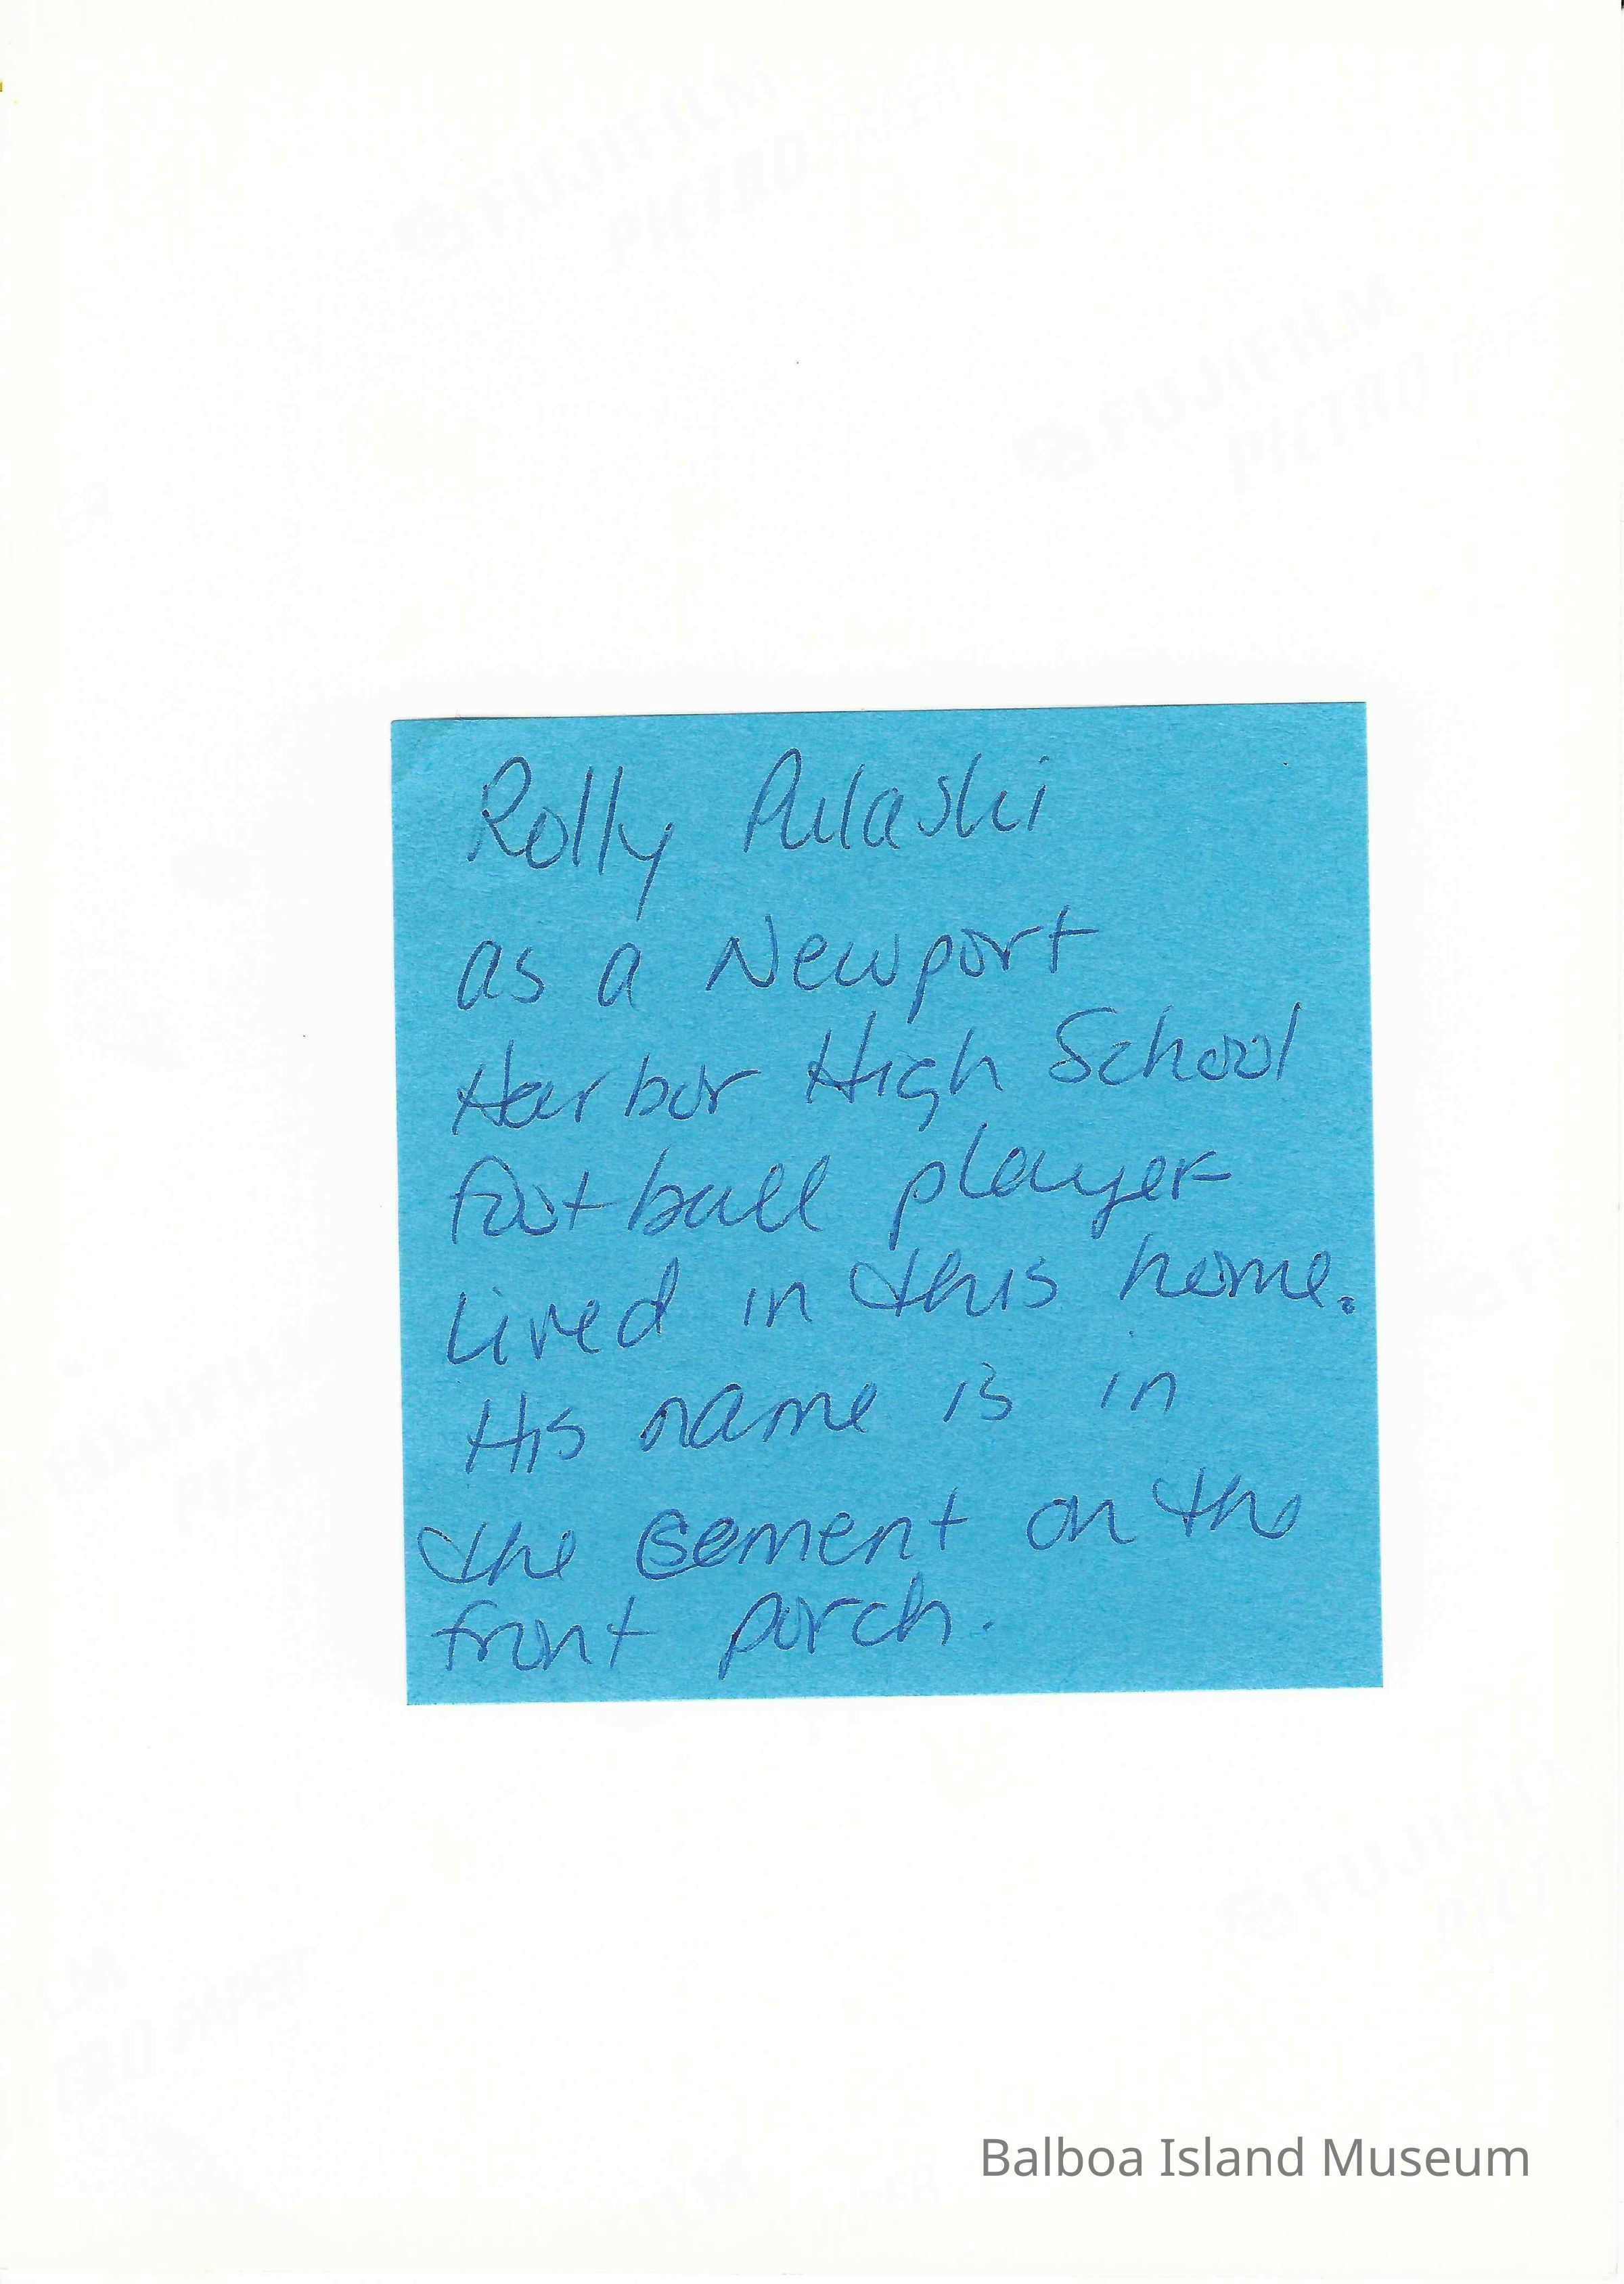 Rolly Pulaski
as a Newport
Harbor High School
football player
lived in this home.
His name is in
the cement on the
front porch.
Balboa Island Museum
FUJIFILM
PICTRO PAPER
FUJIFILM
PICTRO PAPER